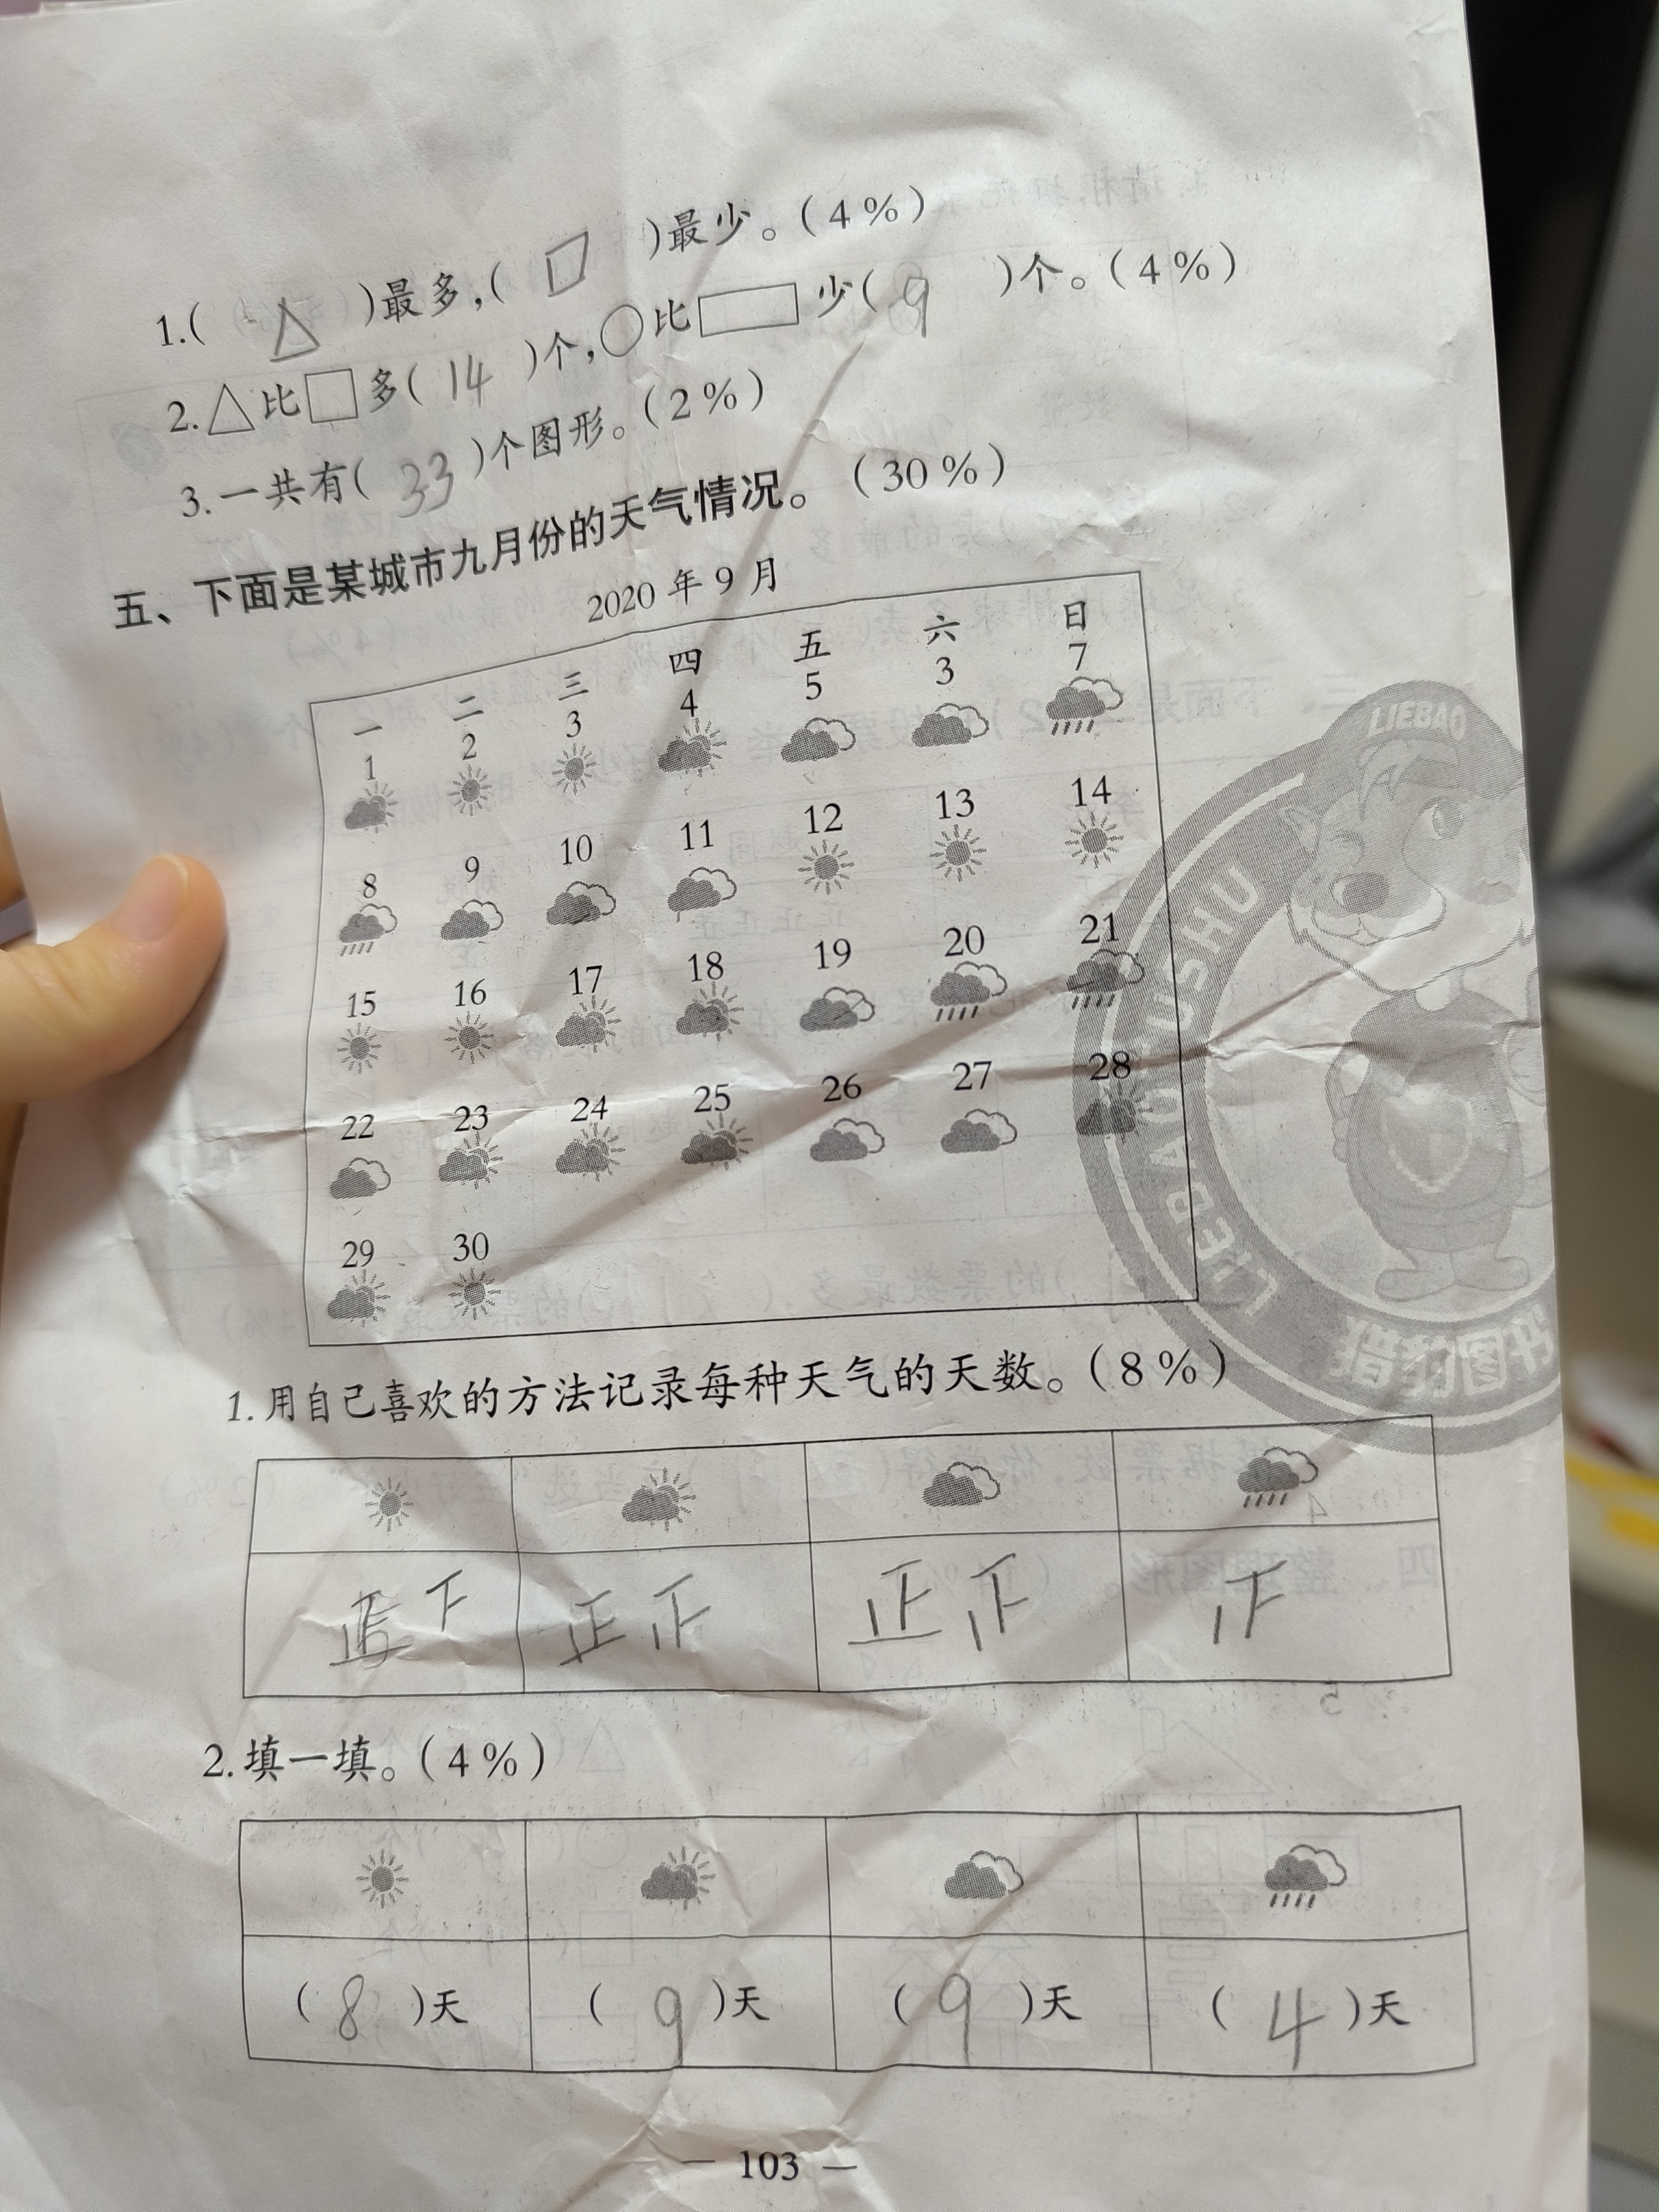 1.( △ )最多,( □ )最少。(4%)
2.△比□多( 14 )个,○比▭少( 9 )个。(4%)
3.一共有( 33 )个图形。(2%)
五、下面是某城市九月份的天气情况。(30%)
2020年9月
一 二 三 四 五 六 日
1 2 3 4 5 3 7
8 9 10 11 12 13 14
15 16 17 18 19 20 21
22 23 24 25 26 27 28
29 30
LIEBAO
LIEBAOTUSHU
猎豹图书
1.用自己喜欢的方法记录每种天气的天数。(8%)
正下 正正 正正 正
2.填一填。(4%)
( 8 )天 ( 9 )天 ( 9 )天 ( 4 )天
— 103 —